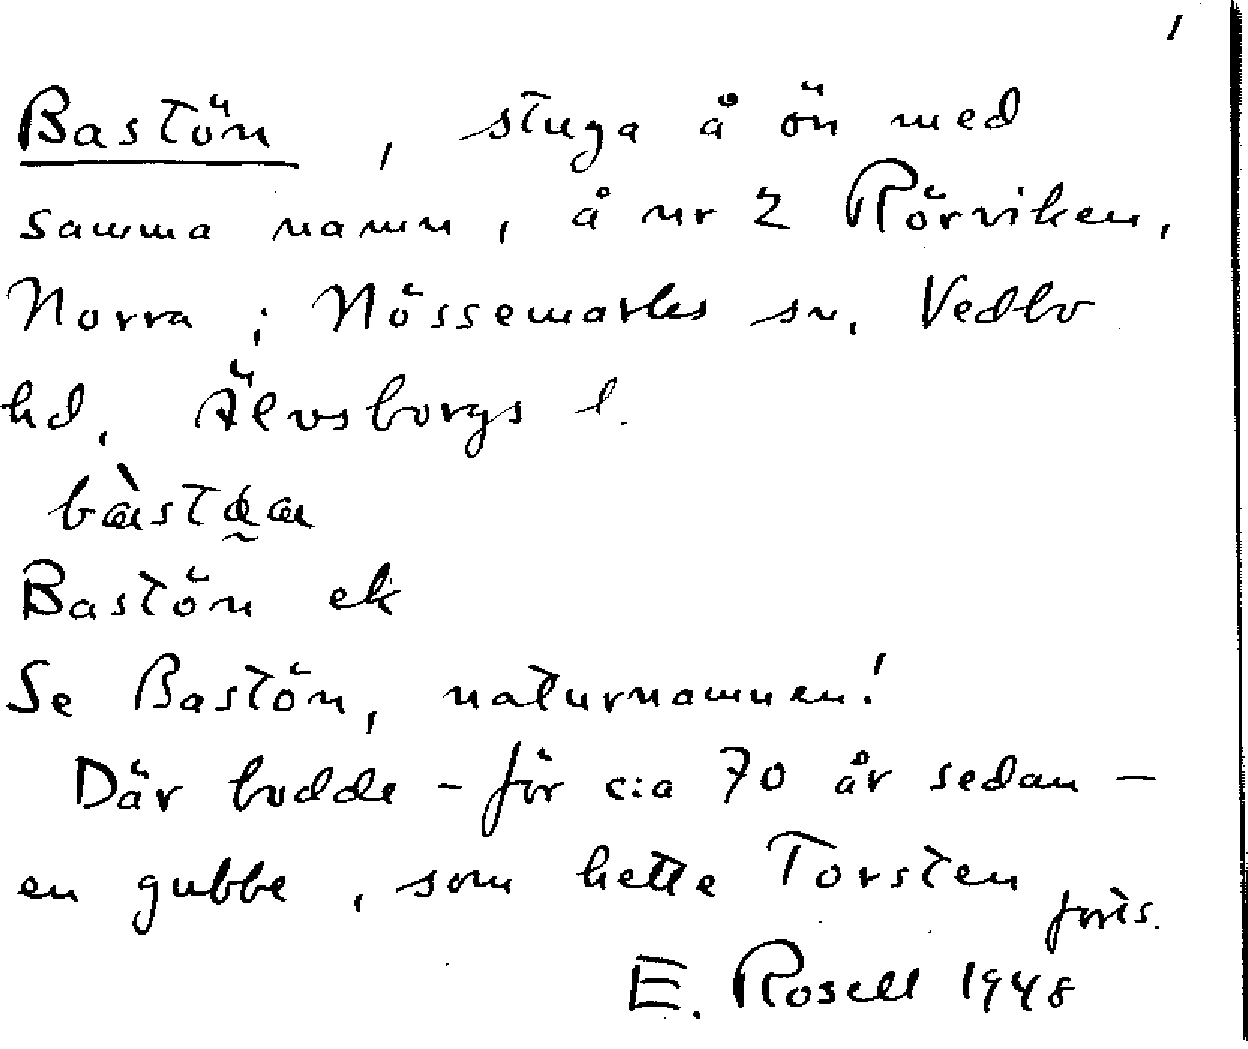 1
Bastön, stuga å ön med
samma namn, å nr 2 Rörviken,
Norra; Nössemarks sn, Vedbo
hd, Älvsborgs l.
Bastön ek
Se Bastön, naturnamnen!
Där bodde - för c:a 70 år sedan -
en gubbe, som hette Torsten
forts.
E. Rosell 1948